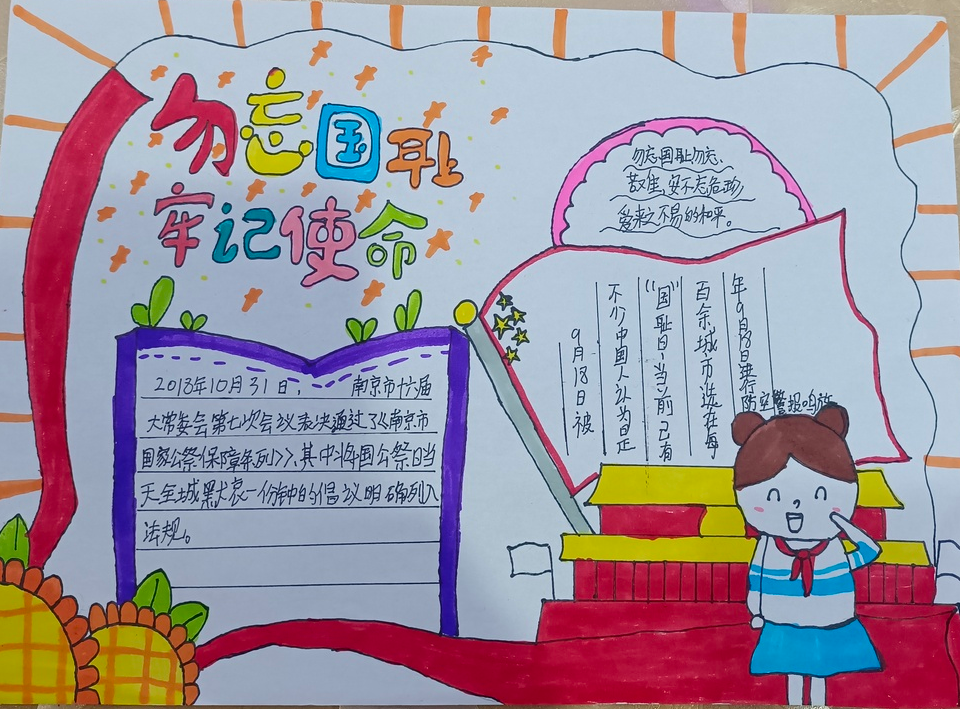 勿忘国耻
牢记使命
勿忘国耻勿忘、
安不忘危珍
爱来之不易的和平。
9月18日被
不少中国人认为日正
“国”耻日，当前已有
百余城市选在每
年9月18日进行
防空警报鸣放
2018年10月31日， 南京市十六届
大常委会第七次会议表决通过了《南京市
国家公祭保障条列》，其中将国公祭日当
天全城默哀一份钟的倡议明确列入
法规。